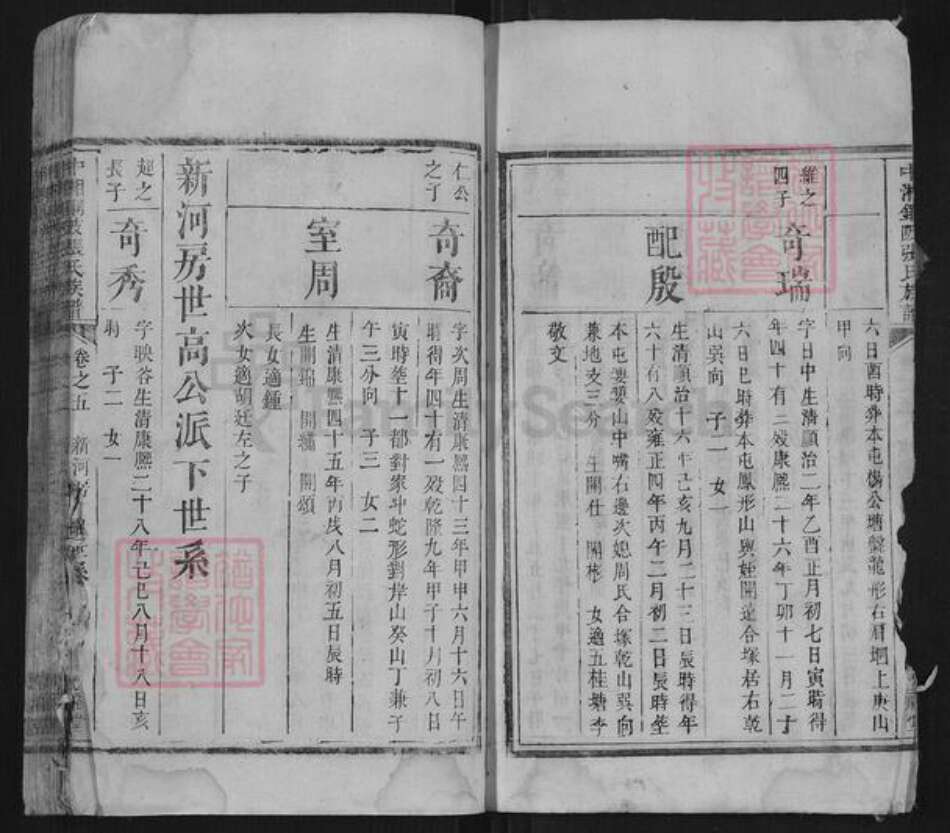 六日酉時葬本屯楊公塘盤龍形右眉堋上庚山
甲向
維之
四子
奇瑞
字日中生清順治二年乙酉正月初七日寅時得
年四十有三歿康熙二十六年丁卯十一月二十
六日巳時葬本屯鳳形山與姪開遠合塚居右乾
山巽向 子一 女一
配殷
生清順治十六年己亥九月二十三日辰時得年
六十有八歿雍正四年丙午二月初二日辰時塟
本屯婁萸山中嘴右邊次媳周氏合塚乾山巽向
兼地支三分 生開仕 開彬 女適五桂塘李
敬文
仁公
之子
奇裔
字次周生清康熙四十三年甲申六月十六日午
時得年四十有一歿乾隆九年甲子十月初八日
寅時塟十一都對家冲蛇形劉岸山癸山丁兼子
午三分向 子三 女二
室周
生清康熙四十五年丙戌八月初五日辰時
生開瑞 開繡 開頌
長女適鍾
次女適胡廷左之子
新河房世高公派下世系
之
長子
奇秀
字映谷生清康熙二十八年己巳八月十八日亥
時 子二 女一
卷之五 新河房